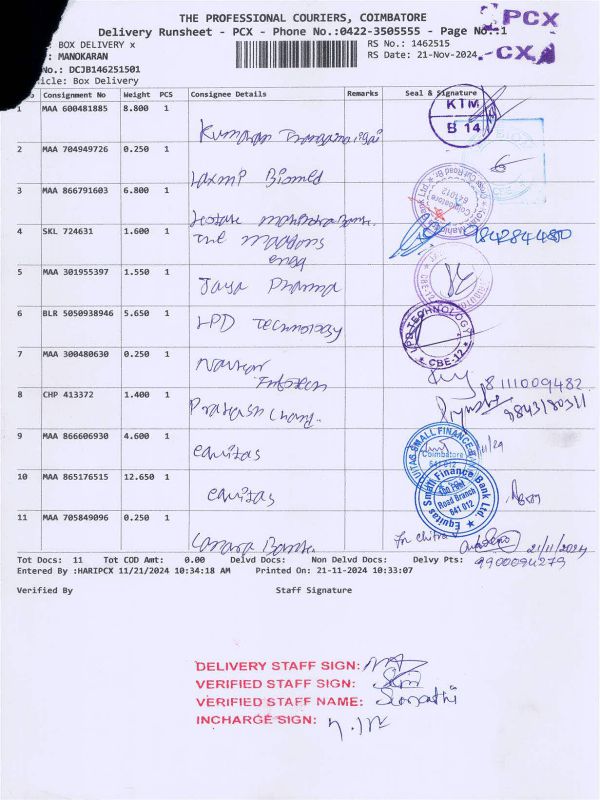 THE PROFESSIONAL COURIERS, COIMBATORE
Delivery Runsheet - PCX - Phone No.:0422-3505555 - Page No.:1
PCX
-CX
: BOX DELIVERY x
RS No.: 1462515
: MANOKARAN
RS Date: 21-Nov-2024
No.: DCJB146251501
icle: Box Delivery
Consignment No Weight PCS Consignee Details Remarks Seal & Signature
1 MAA 600481885 8.800 1 Kumaran
KTM
B 14
2 MAA 704949726 0.250 1 Laxmi Biomed
3 MAA 866791603 6.800 1
Coimbatore
4 SKL 724631 1.600 1 The
engg
984284480
5 MAA 301955397 1.550 1 Jaya Pharma
6 BLR 5050938946 5.650 1 LPD Technology
LPD TECHNOLOGY
* CBE-12 *
7 MAA 300480630 0.250 1
8111009482
8 CHP 413372 1.400 1
9843180311
9 MAA 866606930 4.600 1 equitas
EQUITAS SMALL FINANCE
Coimbatore
641 012
10 MAA 865176515 12.650 1 equitas
Equitas Small Finance Bank Ltd
Road Branch
641 012
11 MAA 705849096 0.250 1 Canara Bank
Chitra
21/11/2024
9900094279
Tot Docs: 11 Tot COD Amt: 0.00 Delvd Docs: Non Delvd Docs: Delvy Pts:
Entered By :HARIPCX 11/21/2024 10:34:18 AM Printed On: 21-11-2024 10:33:07
Verified By Staff Signature
DELIVERY STAFF SIGN:
VERIFIED STAFF SIGN:
VERIFIED STAFF NAME:
INCHARGE SIGN: